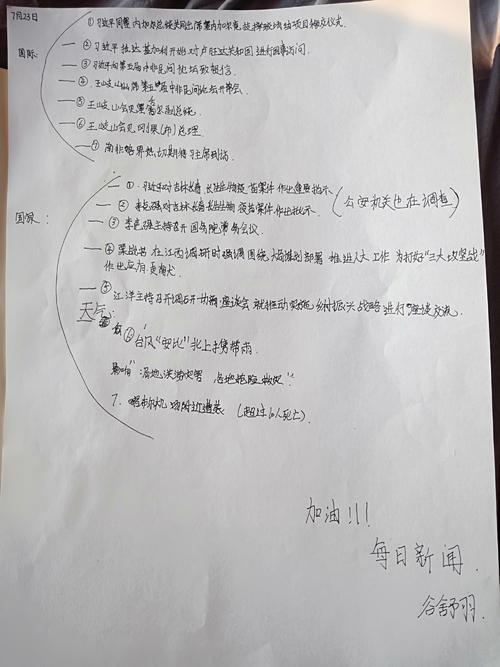 7月23日
国际:
① 习近平同塞内加尔总统共同出席塞内加尔竞技摔跤场项目移交仪式.
② 习近平抵达基加利开始对卢旺达共和国进行国事访问.
③ 习近平向第五届中非民间论坛致贺信
④ 王岐山出席第五届中非民间论坛开幕会
⑤ 王岐山会见塞舌尔副总统.
⑥ 王岐山会见刚果(布)总理
⑦ 南非各界热切期待习主席到访
国家:
① 习近平对吉林长春长生生物疫苗案件作出重要指示 (公安机关也在调查)
② 李克强对吉林长春长生生物疫苗案件作出批示.
③ 李克强主持召开国务院常务会议
④ 栗战书在江西调研时强调围绕大局谋划部署 推进人大工作 为打好"三大攻坚战"
作出应有贡献
⑤ 汪洋主持召开调研协商座谈会 就推动实施乡村振兴战略进行座谈交流.
天气:
⑥ 台风"安比"北上携带雨.
影响 各地 各地抢险救灾
7. 喀布尔机场附近遭袭 (超过10人死亡).
加油!!!
每日新闻.
谷舒羽.